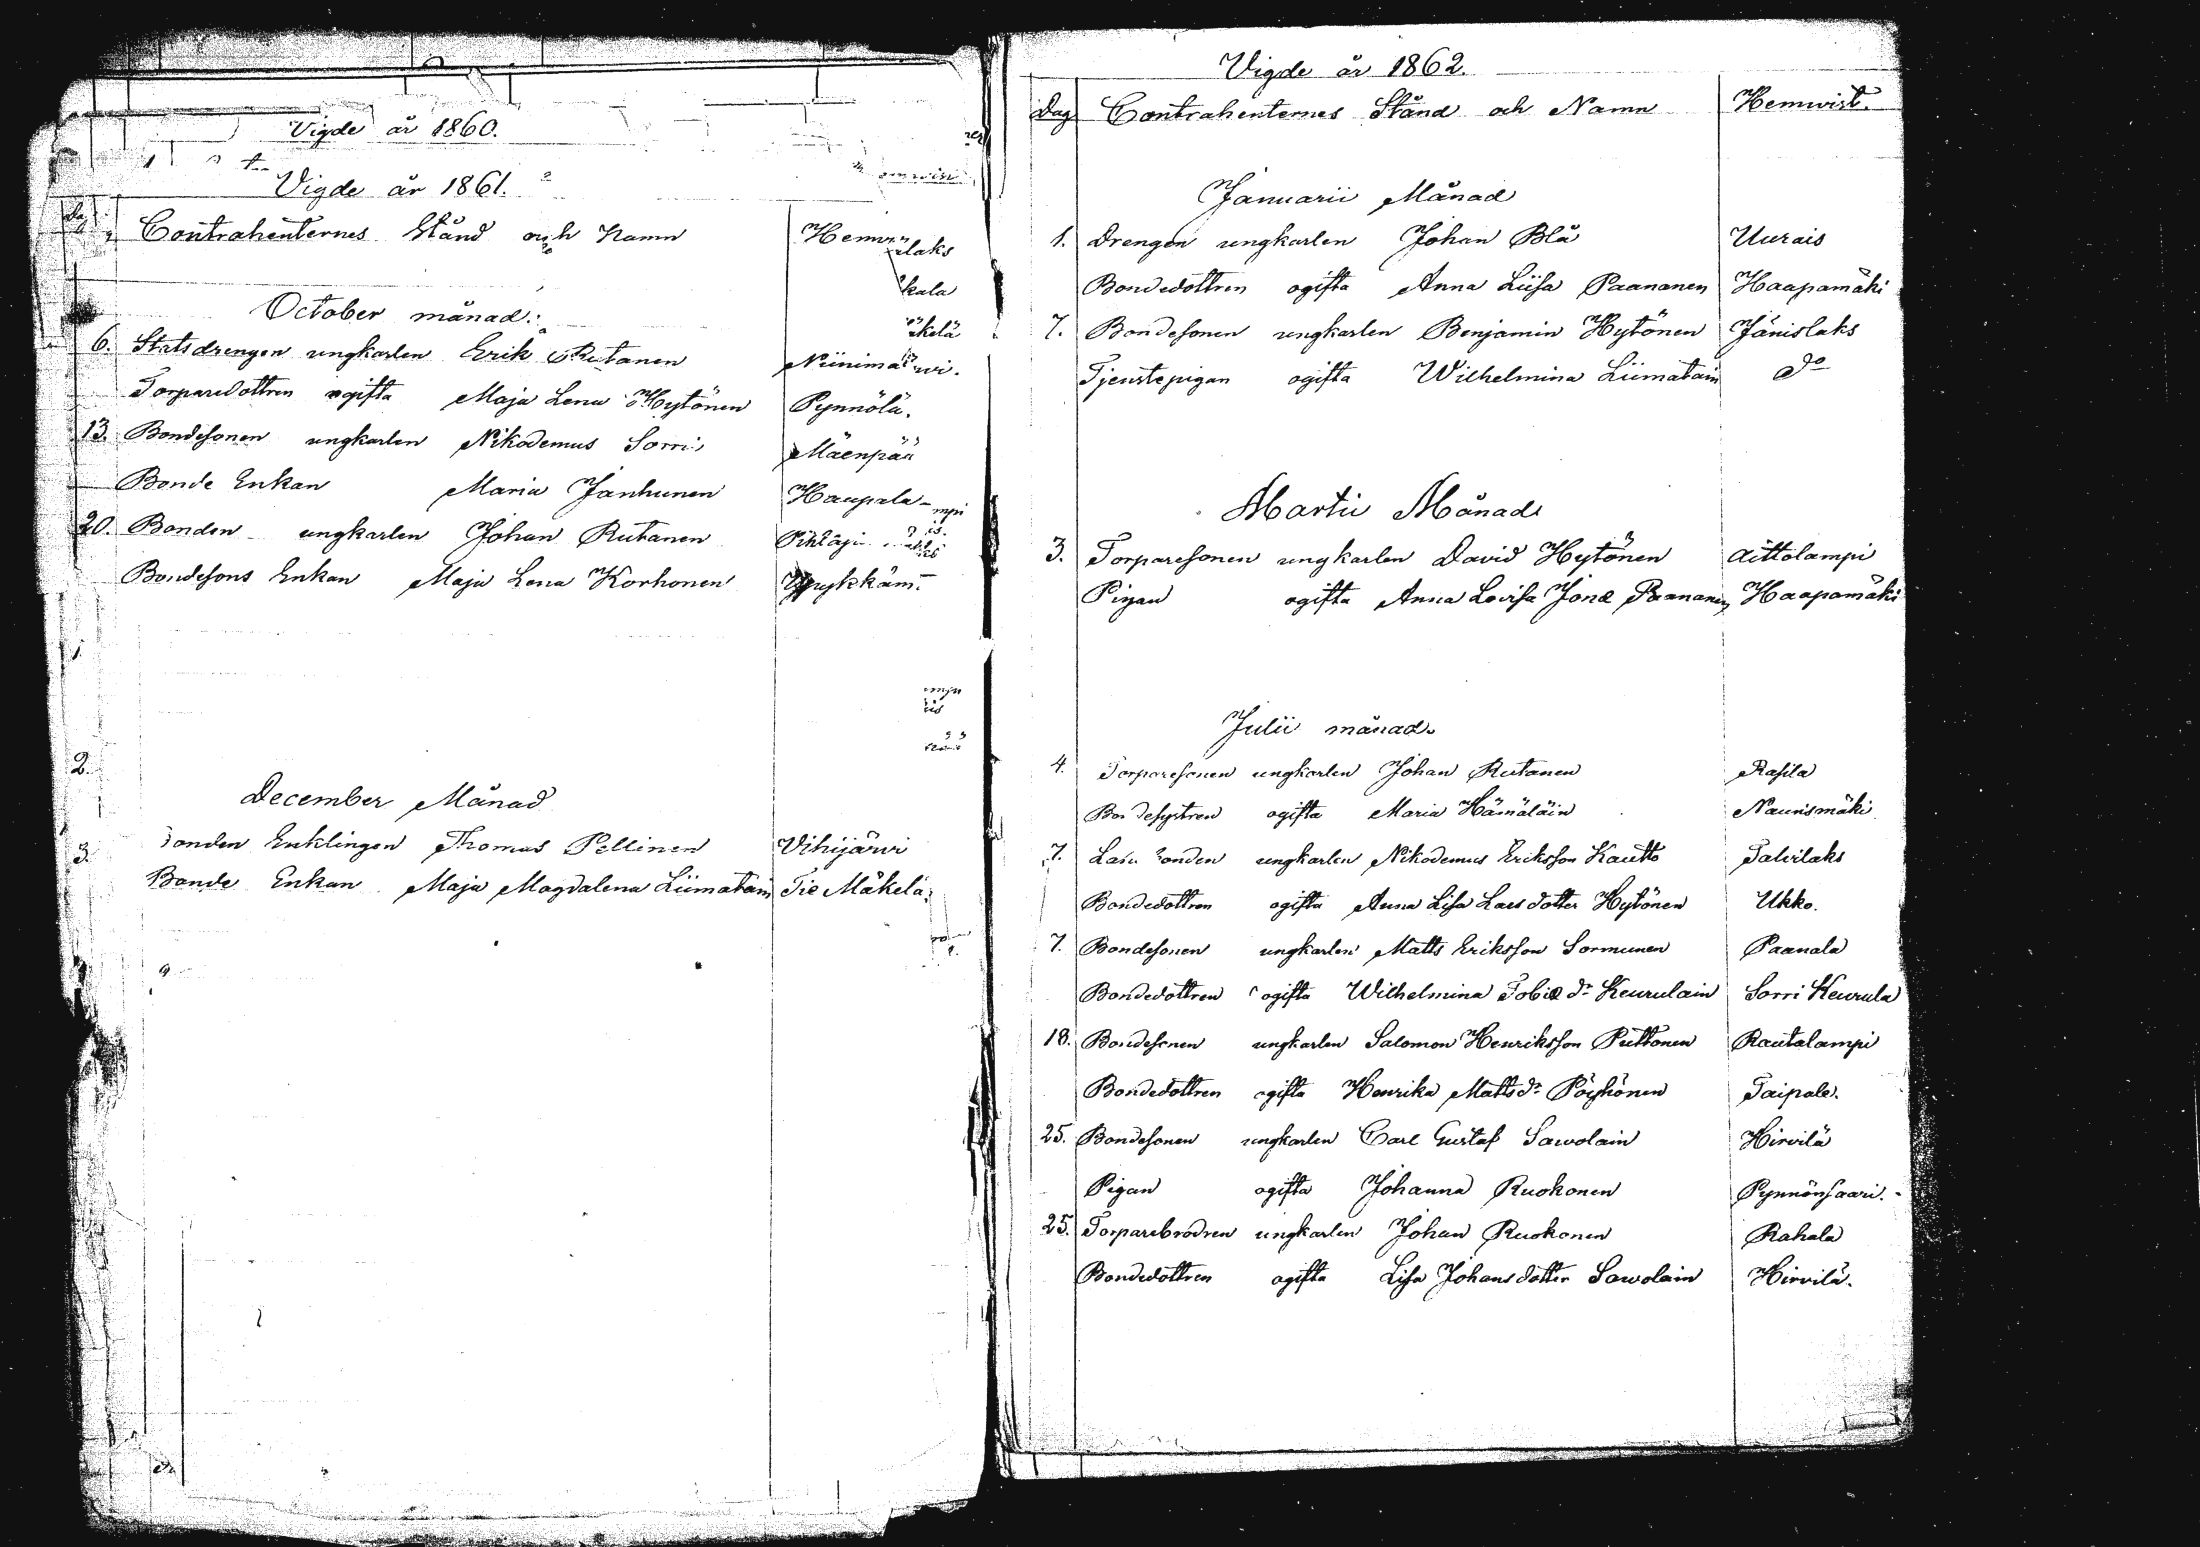 Vigde år 1860.
Vigde år 1861.
Contrahenternes Stånd och Namn
October månad.
6. Statsdrengen ungkarlen Erik Rutanen
Torparedottren ogifta Maja Lena Hytönen Pynnölä.
13. Bondesonen ungkarlen Nikodemus Sorri Mäenpää
Bonde Enkan Maria Janhunen Haapala
20. Bonden ungkarlen Johan Rutanen
Bondesons Enkan Maja Lena Korhonen
2.
December Månad
3. Enklingen Thomas Pellinen Vihijärvi
Bonde Enkan Maja Magdalena Liimatain Tie Mäkelä
Vigde år 1862.
Dag Contrahenternes Stånd och Namn Hemvist.
Januarii Månad
1. Drengen ungkarlen Johan Blå Uurais
Bondedottren ogifta Anna Liisa Paananen Haapamäki
7. Bondesonen ungkarlen Benjamin Hytönen Jänislaks
Tjenstepigan ogifta Wilhelmina Liimatain do
Martii Månad
3. Torparesonen ungkarlen David Hytönen Aittolampi
Pigan ogifta Anna Lovisa Jonæ Paananen Haapamäki
Julii månad.
4. Torparesonen ungkarlen Johan Rutanen Rasila
Bondesystren ogifta Maria Hämäläin Naurismäki
7. ungkarlen Nikodemus Eriksson Kautto Talvilaks
Bondedottren ogifta Anna Lisa Lars dotter Hytönen Ukko.
7. Bondesonen ungkarlen Matts Eriksson Sormunen Paanala
Bondedottren ogifta Wilhelmina Tobiæ dr Keurulain Sorri Keurula
18. Bondesonen ungkarlen Salomon Henriksson Puttonen Rautalampi
Bondedottren ogifta Henrika Matts dr Pöyhönen Taipale.
25. Bondesonen ungkarlen Carl Gustaf Sawolain Hirvilä
Pigan ogifta Johanna Ruokonen Pynnönsaari.
25. Torparebrodren ungkarlen Johan Ruokonen Rahala
Bondedottren ogifta Lisa Johans dotter Sawolain Hirvilä.